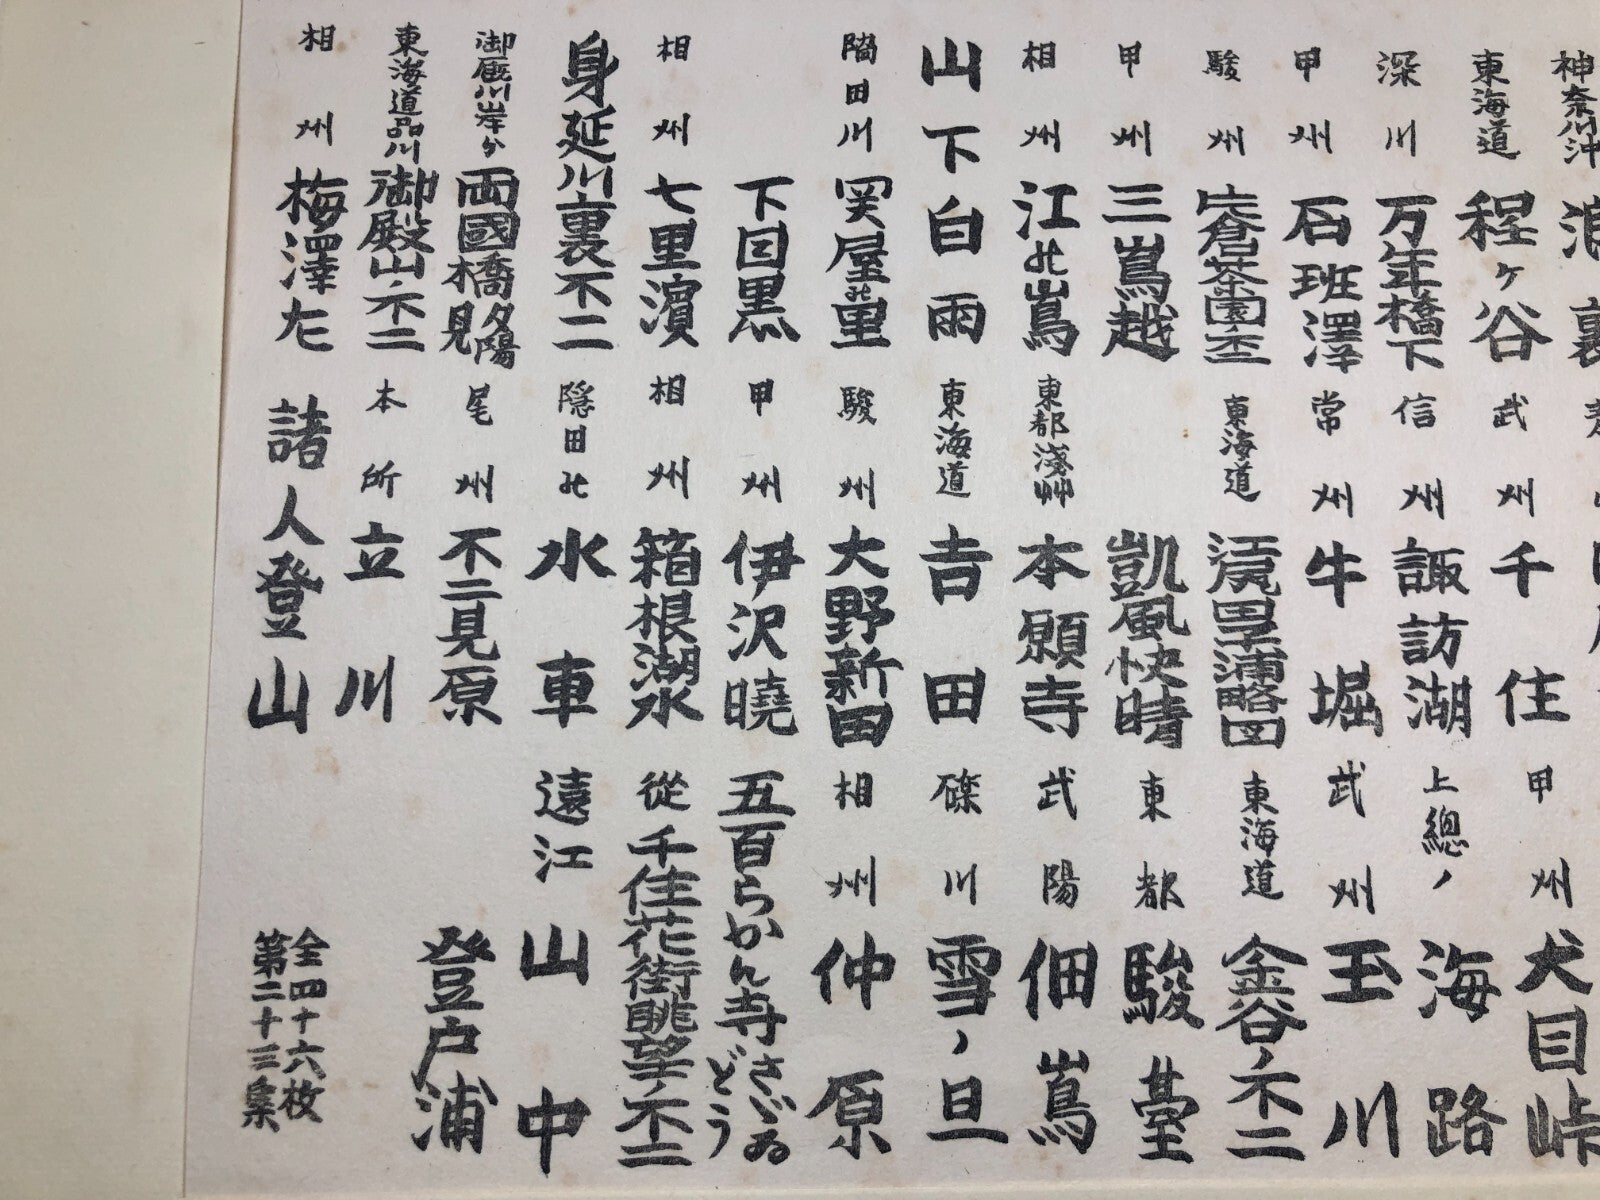 神奈川沖浪裏
東海道程ヶ谷
深川万年橋下
甲州石班澤
駿州片倉茶園ノ不二
甲州三嶌越
相州江の嶌
山下白雨
隅田川関屋の里
下目黒
相州七里濱
身延川裏不二
御厩川岸ゟ両國橋夕陽見
東海道品川御殿山ノ不二
相州梅澤左
武州千住
信州諏訪湖
常州牛堀
東海道江尻田子浦略図
凱風快晴
東都淺艸本願寺
東海道吉田
駿州大野新田
甲州伊沢曉
相州箱根湖水
隠田の水車
尾州不二見原
本所立川
諸人登山
甲州犬目峠
上總ノ海路
武州玉川
東海道金谷ノ不二
東都駿臺
武陽佃嶌
礫川雪ノ旦
相州仲原
五百らかん寺さゞゐどう
從千住花街眺望ノ不二
遠江山中
登戸浦
全四十六枚
第二十三集